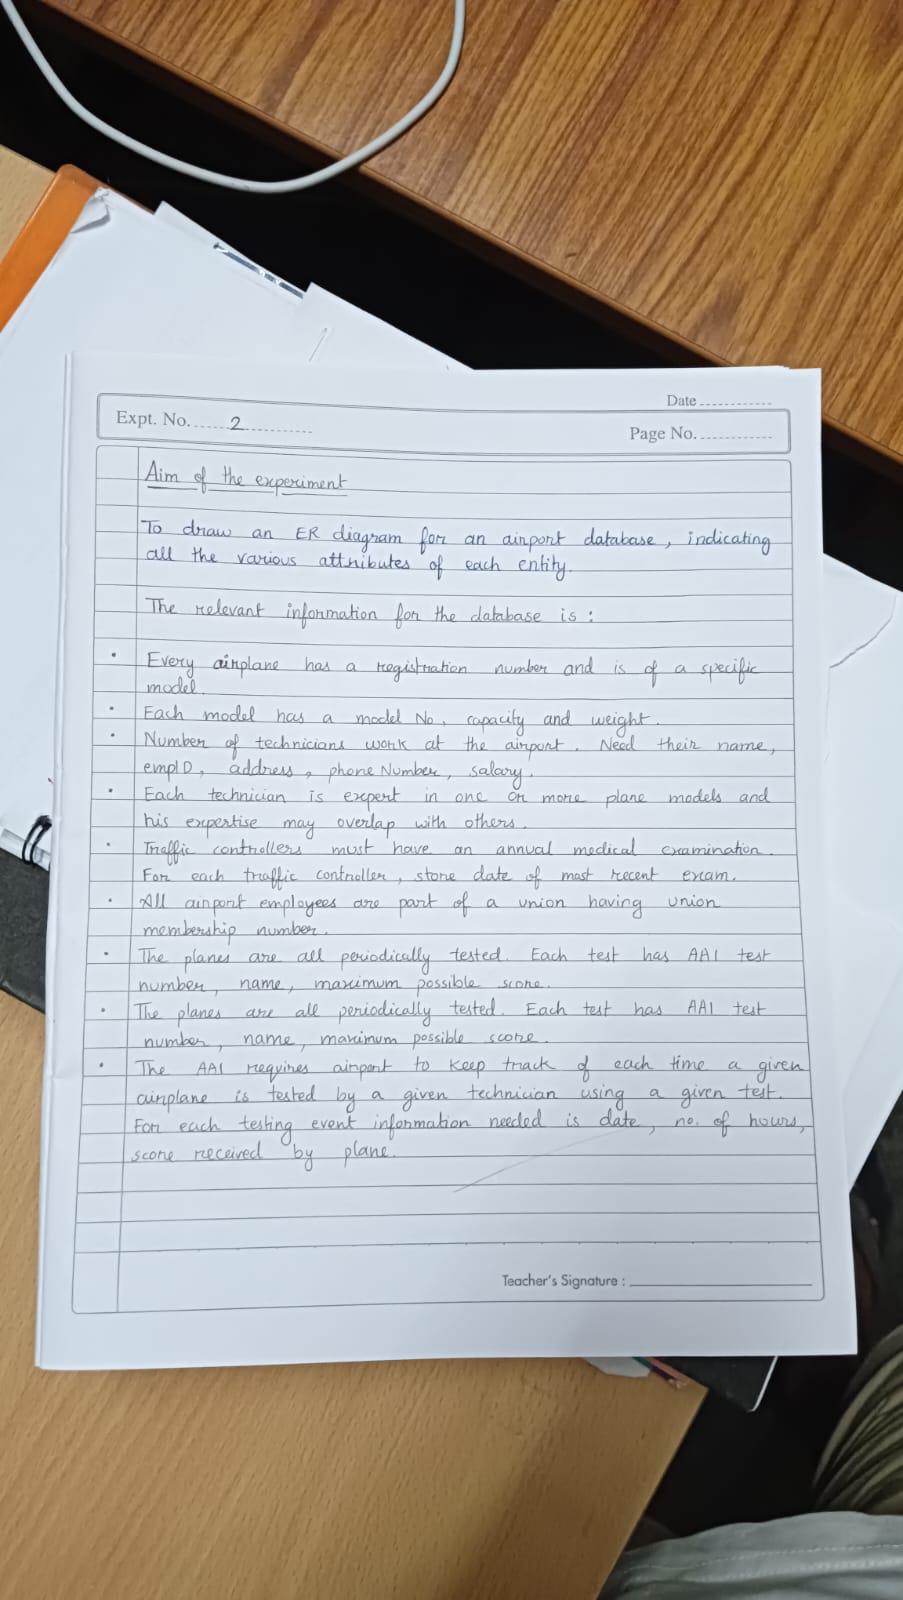 Date
Expt. No. 2
Page No.
Aim of the experiment
To draw an ER diagram for an airport database, indicating
all the various attributes of each entity.
The relevant information for the database is :
• Every airplane has a registration number and is of a specific
model.
• Each model has a model No, capacity and weight.
• Number of technicians work at the airport. Need their name,
empID, address, phone Number, salary.
• Each technician is expert in one or more plane models and
his expertise may overlap with others.
• Traffic controllers must have an annual medical examination.
For each traffic controller, store date of most recent exam.
• All airport employees are part of a union having union
membership number.
• The planes are all periodically tested. Each test has AAI test
number, name, maximum possible score.
• The planes are all periodically tested. Each test has AAI test
number, name, maximum possible score.
• The AAI requires airport to keep track of each time a given
airplane is tested by a given technician using a given test.
For each testing event information needed is date, no. of hours,
score received by plane.
Teacher's Signature :